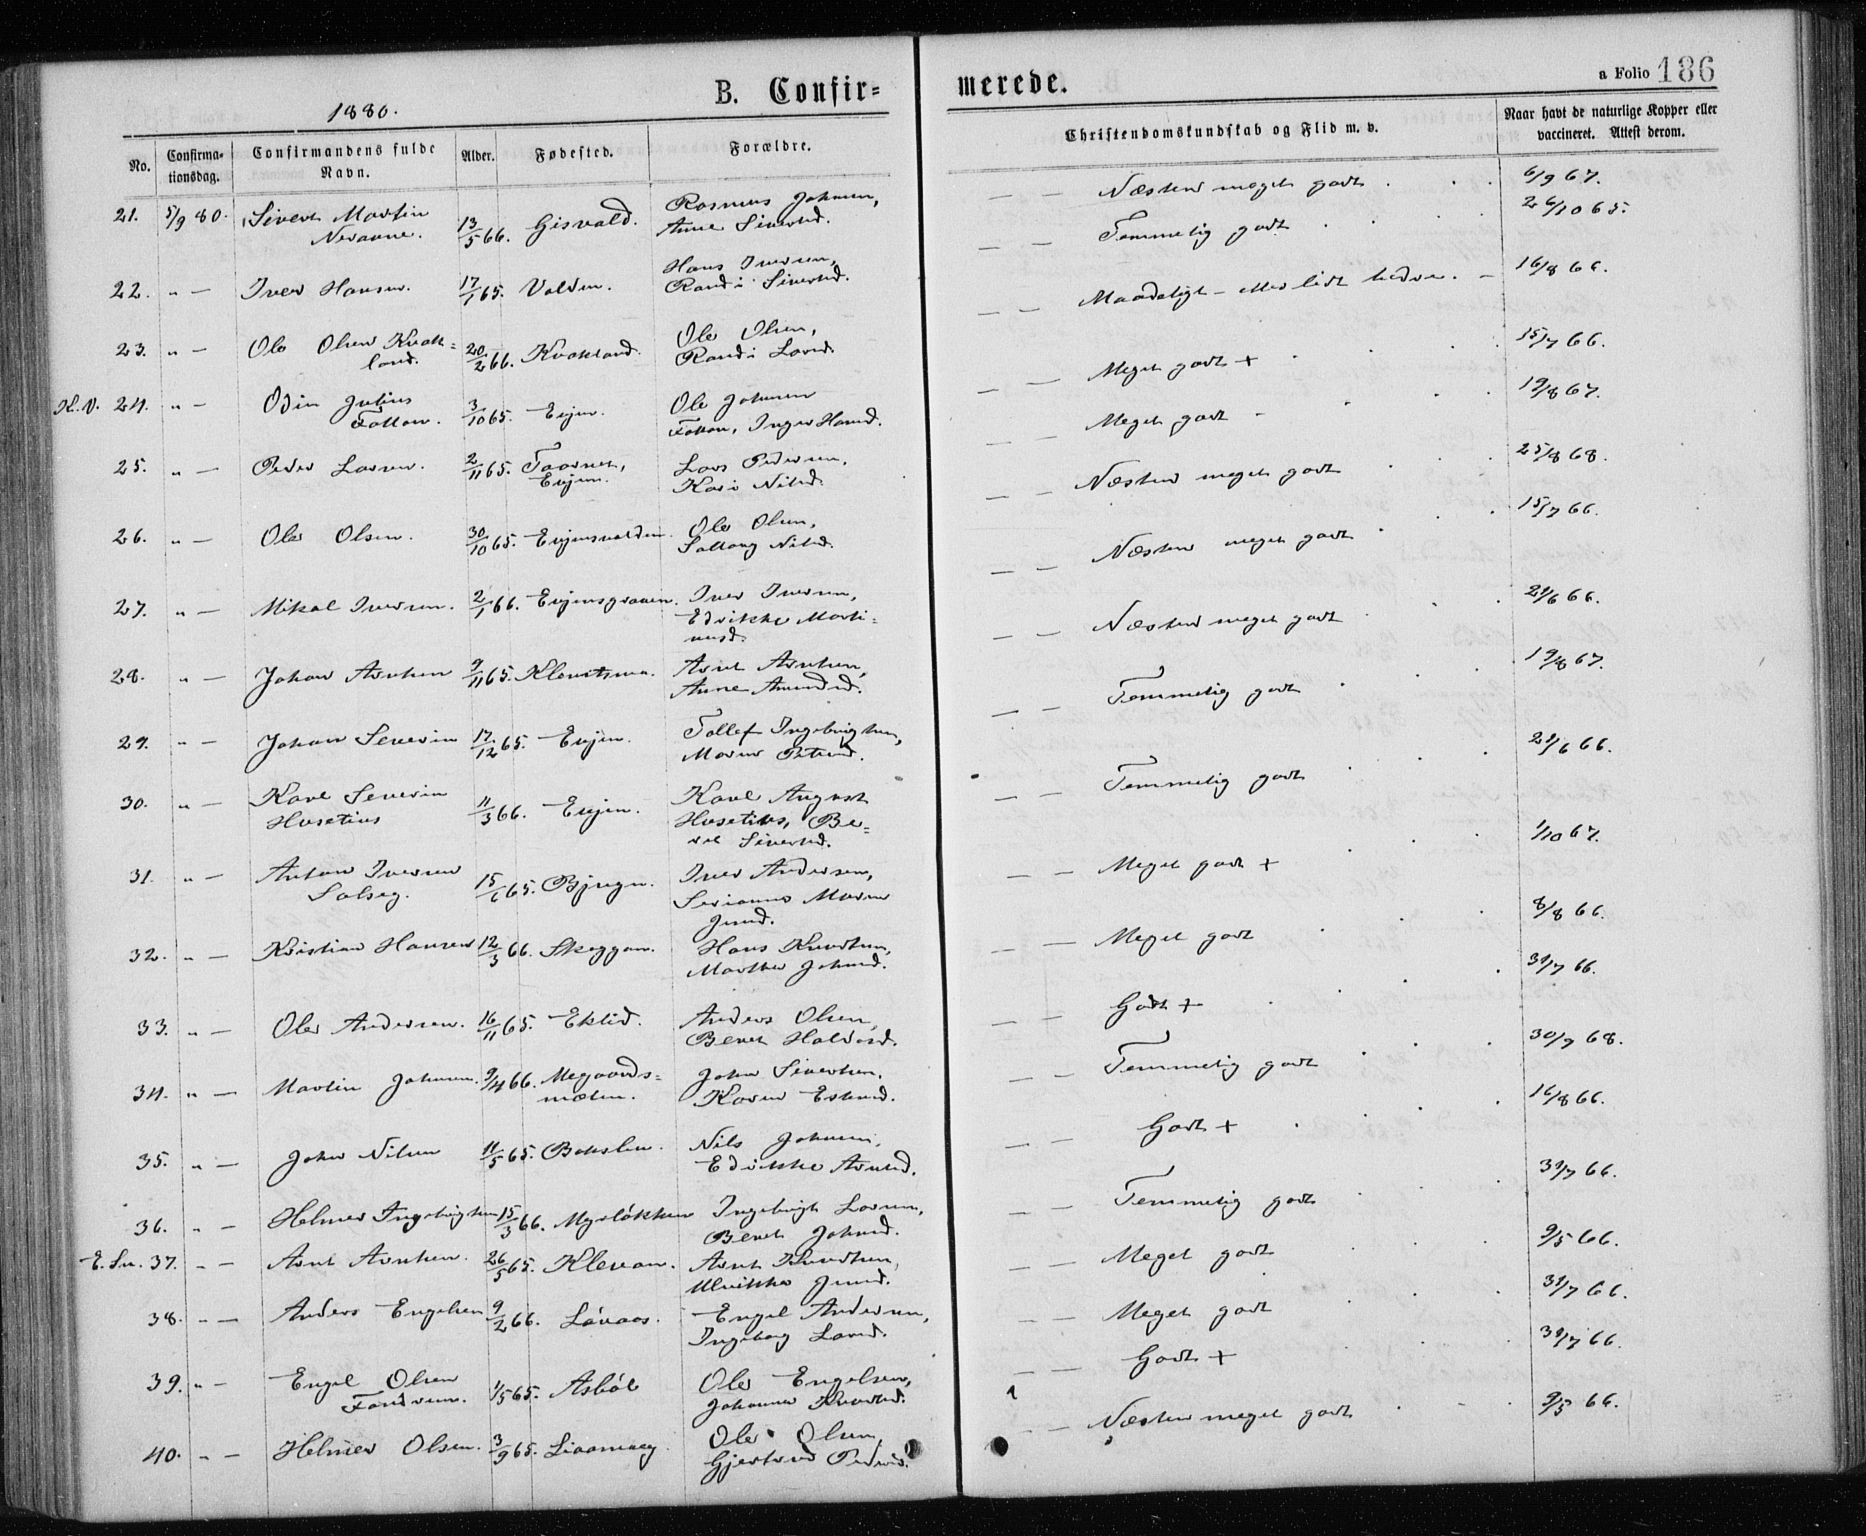 B. Confir=
merede.
a Folio 186
1880.
No. Confirma-tionsdag. Confirmandens fulde Navn. Alder. Fødested. Forældre. Christendomskundskab og Flid m. v. Naar havt de naturlige Kopper eller vaccineret. Attest derom.
21. 5/9 80. Sivert Martin 13/5 66. Gisvald. Rasmus Johnsen, — — Næsten meget godt 6/9 67.
Anne Sivertsd.
22. " — Iver Hansen. 17/1 65. Valden. Hans Iversen, — — Temmelig godt 26/10 65.
Randi Sivertsd.
23. " — Ole Olsen Kvak= 20/2 66. Kvakland. Ole Olsen, — — Maadeligt - eller lidt bedre. — 16/8 66.
land. Randi Larsd.
K.V. 24. " — Odin Julius 3/10 65. Evjen. Ole Johnsen — — Meget godt + 15/7 66.
Fattan. Fattan, Inger Hansd.
25. " — Peder Larsen. 2/11 65. Taarnet, Lars Pedersen, — — Meget godt 19/8 67.
Evjen. Kari Nilsd.
26. " — Ole Olsen. 30/10 65. Evjensvalden. Ole Olsen, — — Næsten meget godt 25/8 68.
Nilsd.
27. " — Mikal Iversen. 2/1 66. Evjensgraven. Iver Iversen, — — Næsten meget godt 15/7 66.
Edrikke Marti=
nusd.
28. " — Johan Arntsen 9/11 65. Arnt Arntsen, — — Næsten meget godt 21/6 66.
Anne Amundsd.
29. " — Johan Severin 17/12 65. Evjen. Tollef Ingebrigtsen, — — Temmelig godt 19/8 67.
Maren Petersd.
30. " — Karl Severin 11/3 66. Evjen. Karl August — — Temmelig godt 21/6 66.
Husetius Husetius, Be=
ret Sivertsd.
31. " — Anton Iversen 15/6 65. Bjugn. Iver Andersen, — — Meget godt + 1/10 67.
Solseg. Serianna Maren
Jensd.
32. " — Kristian Hansen 12/3 66. Skeggan. Hans Knudsen, — — Meget godt 8/8 66.
Marthe Johnsd.
33. " — Ole Andersen. 16/11 65. Eklid. Anders Olsen, — — Godt + 31/7 66.
Beret Haldosd.
34. " — Martin Johnsen. 9/4 66. Megaards= John Sivertsen, — — Temmelig godt 30/9 68.
mælen. Karen Estensd.
35. " — John Nilsen 11/5 65. Bakslen. Nils Johnsen, — — Godt + 16/8 66.
Edrikke Arntsd.
36. " — Helmer Ingebrigtsen 15/3 66. Myrløkken Ingebrigt Larsen, — — Temmelig godt 31/7 66.
Beret Johnsd.
E. Sn. 37. " — Arnt Arntsen. 26/5 65. Klevan. Arnt Knudsen, — — Meget godt 9/5 66.
Ulrikke Jensd.
38. " — Anders Engelsen 9/2 66. Løvaas. Engel Andersen, — — Meget godt 31/7 66.
Ingeborg Larsd.
39. " — Engel Olsen 1/5 65. Asbøl Ole Engelsen, — — Godt + 31/7 66.
Johanna Knudsd.
40. " — Helmer Olsen. 3/9 65. Ole Olsen, — — Næsten meget godt 9/5 66.
Gjertrud Pedersd.